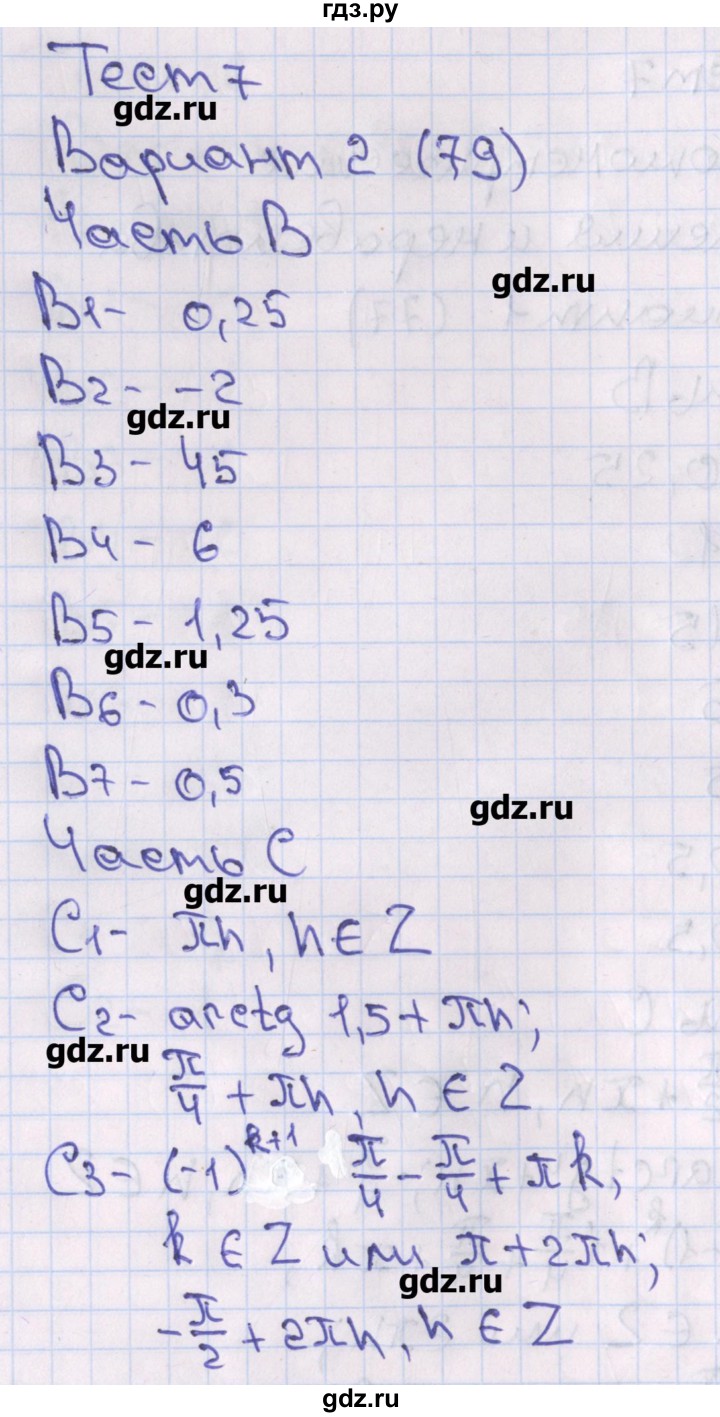 гдз.ру
Тест 7
gdz.ru
Вариант 2 (79)
Часть В
gdz.ru
В1- 0,25
В2- -2
gdz.ru
В3- 45
В4- 6
В5- 1,25
gdz.ru
В6- 0,3
В7- 0,5
gdz.ru
Часть С
gdz.ru
С1- πn, n ∈ Z
С2- arctg 1,5 + πn;
gdz.ru
π/4 + πn, n ∈ Z
С3- (-1)^(k+1) π/4 - π/4 + πk,
k ∈ Z или π + 2πn;
gdz.ru
-π/2 + 2πn, n ∈ Z
gdz.ru